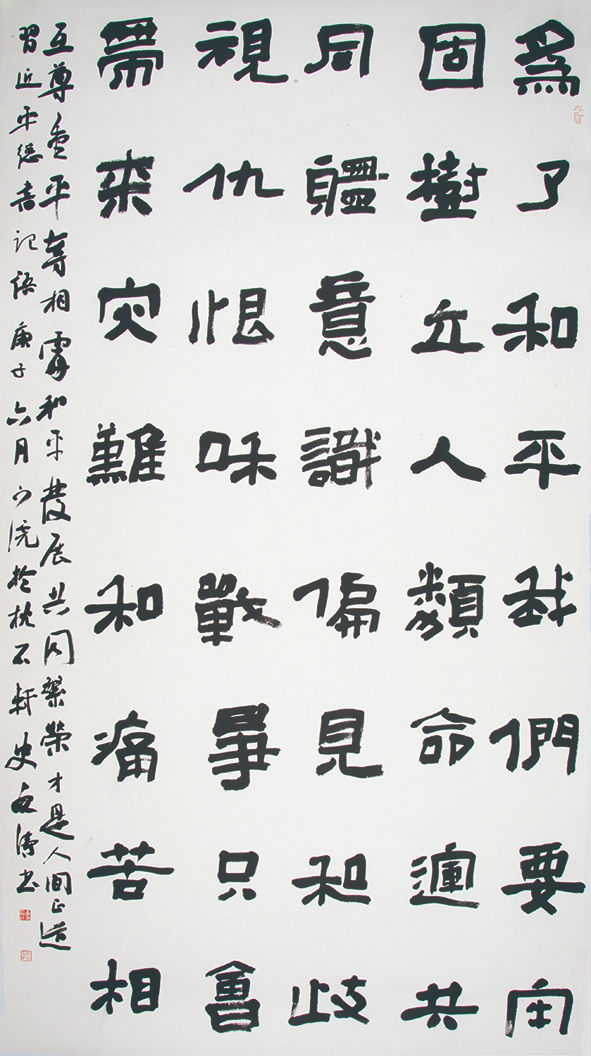 為了和平我們要牢
固樹立人類命運共
同軆意識偏見和歧
視仇恨咊戰爭只會
帶來灾難和痛苦相
互尊重平等相處和平發展共同繁榮才是人間正道
習近平總書記語庚子六月於枕石軒史濤書